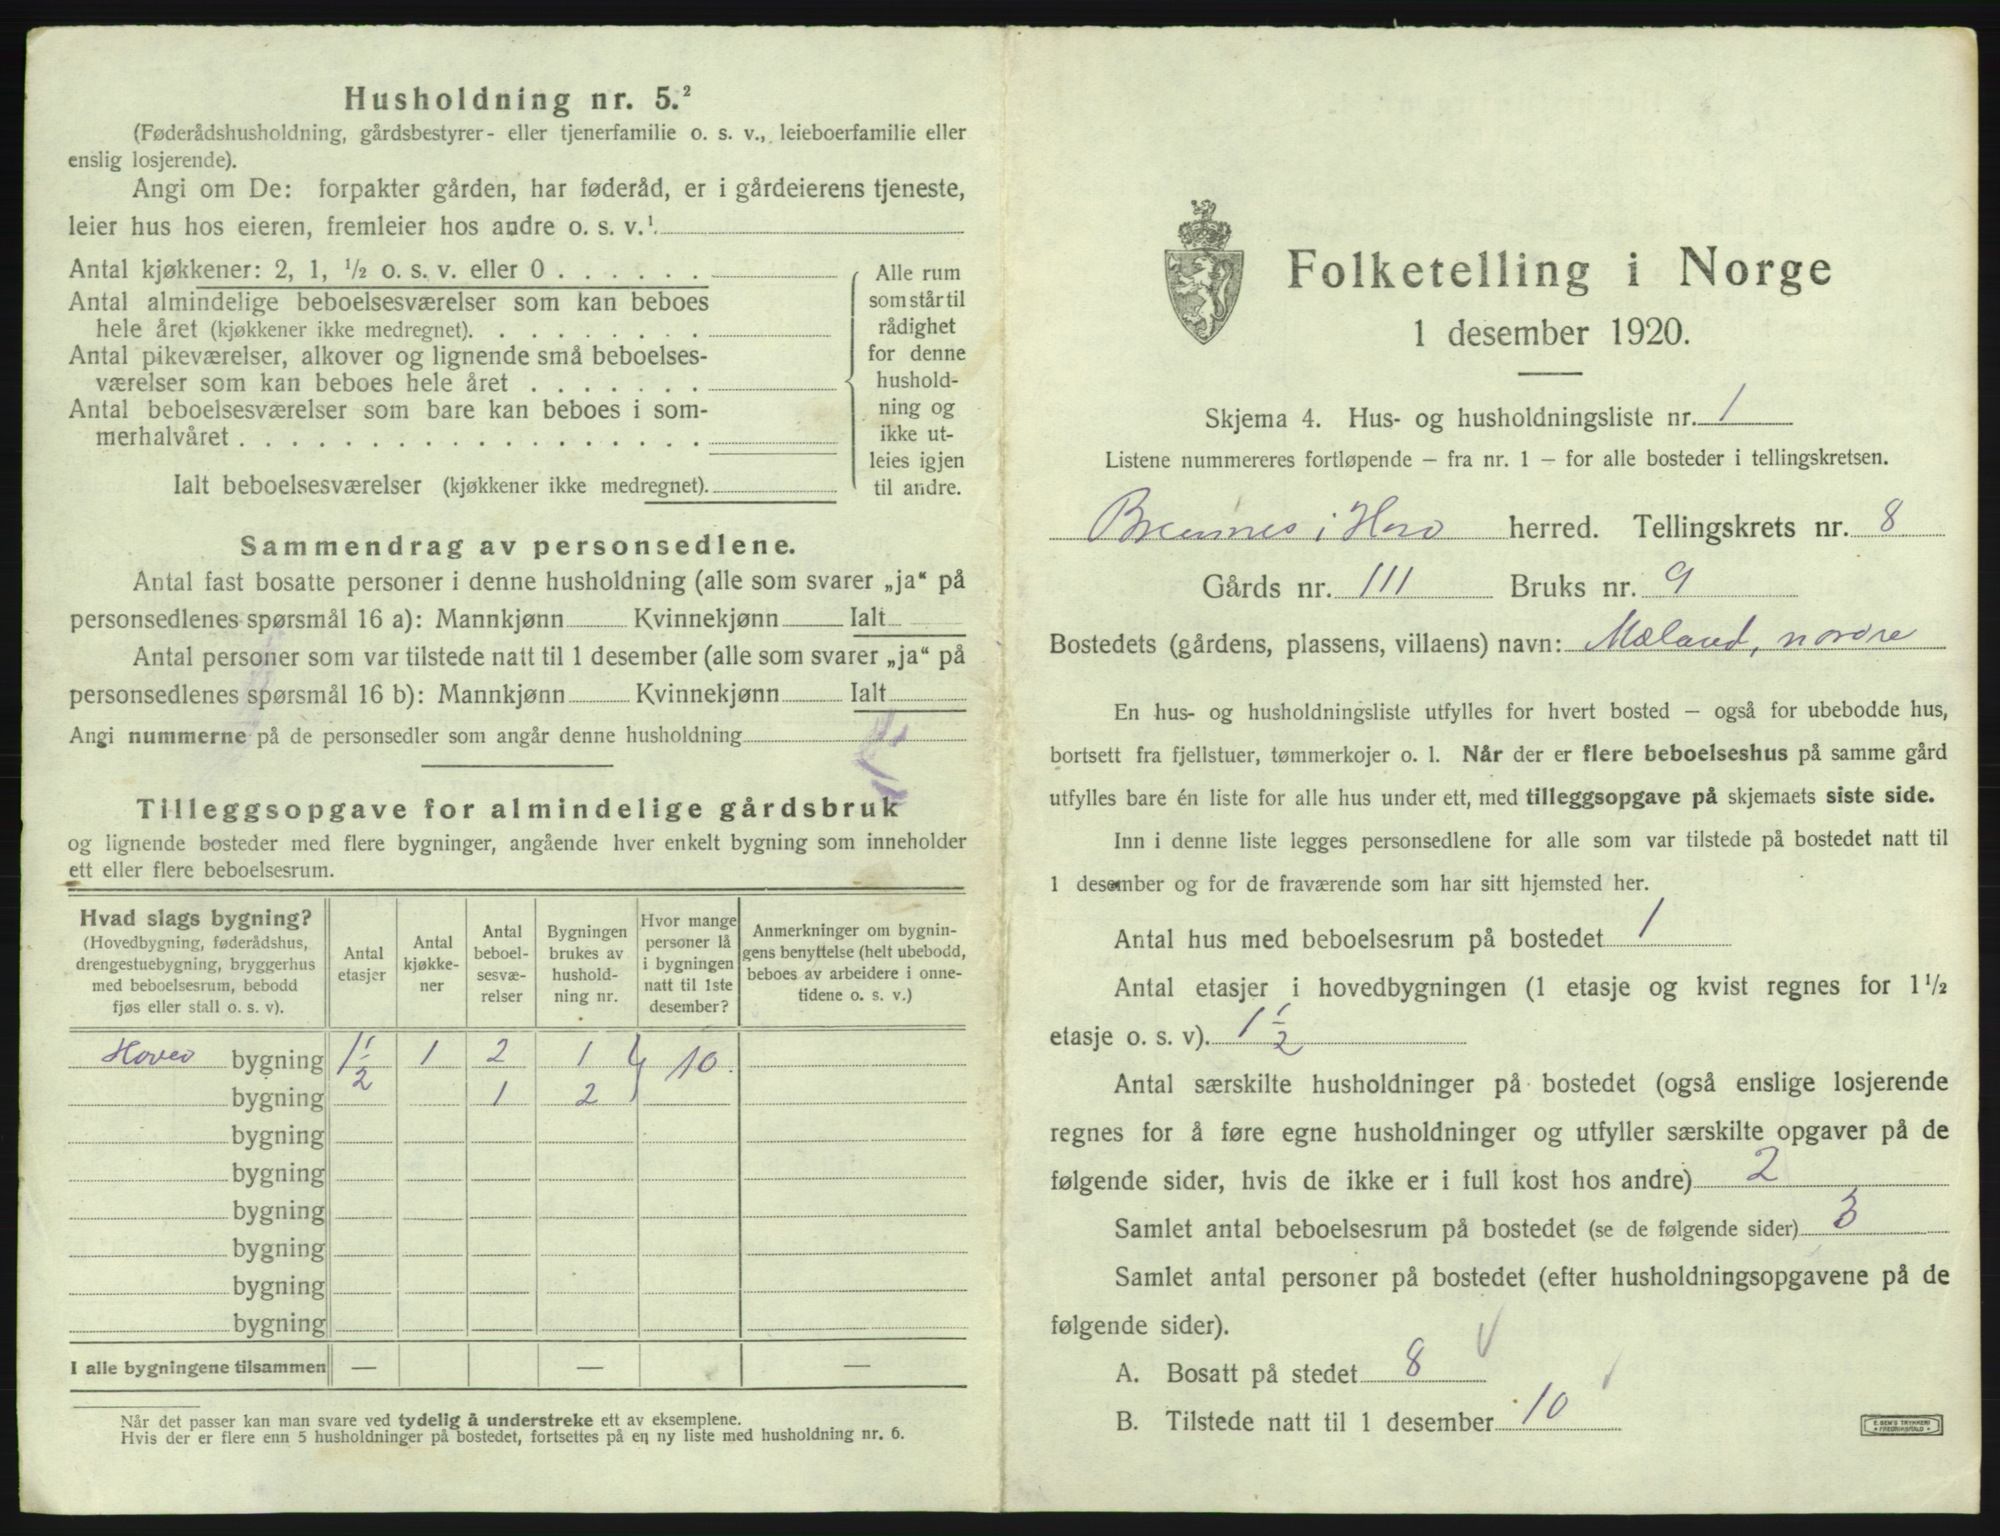 Husholdning nr. 5.²
(Føderådshusholdning, gårdsbestyrer- eller tjenerfamilie o. s. v., leieboerfamilie eller
enslig losjerende).
Angi om De: forpakter gården, har føderåd, er i gårdeierens tjeneste,
leier hus hos eieren, fremleier hos andre o. s. v.¹
Antal kjøkkener: 2, 1, ½ o. s. v. eller 0 . . . . . .
Antal almindelige beboelsesværelser som kan beboes
hele året (kjøkkener ikke medregnet). . . . . . . . .
Antal pikeværelser, alkover og lignende små beboelses-
værelser som kan beboes hele året . . . . . . .
Antal beboelsesværelser som bare kan beboes i som-
merhalvåret . . . . . . . . . . . . . . . . . .
Ialt beboelsesværelser (kjøkkener ikke medregnet).
Alle rum
som står til
rådighet
for denne
hushold-
ning og
ikke ut-
leies igjen
til andre.
Sammendrag av personsedlene.
Antal fast bosatte personer i denne husholdning (alle som svarer „ja“ på
personsedlenes spørsmål 16 a): Mannkjønn Kvinnekjønn Ialt
Antal personer som var tilstede natt til 1 desember (alle som svarer „ja“ på
personsedlenes spørsmål 16 b): Mannkjønn Kvinnekjønn Ialt
Angi nummerne på de personsedler som angår denne husholdning
Tilleggsopgave for almindelige gårdsbruk
og lignende bosteder med flere bygninger, angående hver enkelt bygning som inneholder
ett eller flere beboelsesrum.
Hvad slags bygning?
(Hovedbygning, føderådshus,
drengestuebygning, bryggerhus
med beboelsesrum, bebodd
fjøs eller stall o. s. v).
Antal
etasjer
Antal
kjøkke-
ner
Antal
beboel-
sesvæ-
relser
Bygningen
brukes av
hushold-
ning nr.
Hvor mange
personer lå
i bygningen
natt til 1ste
desember?
Anmerkninger om bygnin-
gens benyttelse (helt ubebodd,
beboes av arbeidere i onne-
tidene o. s. v.)
Hoved bygning 1½ 1 2 1 } 10.
bygning 1 2
bygning
bygning
bygning
bygning
bygning
bygning
I alle bygningene tilsammen — — —
Når det passer kan man svare ved tydelig å understreke ett av eksemplene.
Hvis der er flere enn 5 husholdninger på bostedet, fortsettes på en ny liste med husholdning nr. 6.
Folketelling i Norge
1 desember 1920.
Skjema 4. Hus- og husholdningsliste nr. 1
Listene nummereres fortløpende – fra nr. 1 – for alle bosteder i tellingskretsen.
Bremnes i Hord herred. Tellingskrets nr. 8
Gårds nr. 111 Bruks nr. 9
Bostedets (gårdens, plassens, villaens) navn: Mæland, nordre
En hus- og husholdningsliste utfylles for hvert bosted – også for ubebodde hus,
bortsett fra fjellstuer, tømmerkojer o. l. Når der er flere beboelseshus på samme gård
utfylles bare én liste for alle hus under ett, med tilleggsopgave på skjemaets siste side.
Inn i denne liste legges personsedlene for alle som var tilstede på bostedet natt til
1 desember og for de fraværende som har sitt hjemsted her.
Antal hus med beboelsesrum på bostedet 1
Antal etasjer i hovedbygningen (1 etasje og kvist regnes for 1½
etasje o. s. v). 1½
Antal særskilte husholdninger på bostedet (også enslige losjerende
regnes for å føre egne husholdninger og utfyller særskilte opgaver på de
følgende sider, hvis de ikke er i full kost hos andre) 2
Samlet antal beboelsesrum på bostedet (se de følgende sider) 3
Samlet antal personer på bostedet (efter husholdningsopgavene på de
følgende sider).
A. Bosatt på stedet 8
B. Tilstede natt til 1 desember 10
E. SEM'S TRYKKERI
FREDRIKSHALD